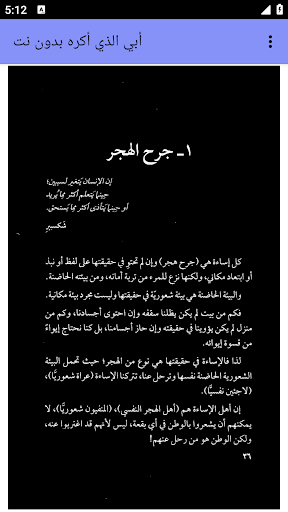 5:12
أبي الذي أكره بدون نت
١ـ جرح الهجر
إن الإنسان يتغير لسببين؛
حينما يتعلم أكثر مما يُريد.
أو حينما يتأذى أكثر مما يستحق.
شكسبير
كل إساءة هي (جرح هجر) وإن لم تحتوِ في حقيقتها على لفظ أو نبذ
أو ابتعاد مكاني، ولكنها نزع للمرء من تربة أمانه، ومن بيئته الحاضنة.
والبيئة الحاضنة هي بيئة شعوريّة في حقيقتها وليست مجرد بيئة مكانية.
فكم من بيت لم يكن يظلنا سقفه وإن احتوى أجسادنا، وكم من
منزل لم يكن يؤوينا في حقيقته وإن حاز أجسامنا، بل كنا نحتاج إيواءً
من قسوة إيوائه.
لذا فالإساءة في حقيقتها هي نوع من الهجر؛ حيث تحمل البيئة
الشعورية الحاضنة نفسها وترحل عنا، تتركنا الإساءة (عراة شعوريًّا)،
(لاجئين نفسيًّا).
إن أهل الإساءة هم (أهل الهجر النفسي)، (المنفيون شعوريًّا)، لا
يمكنهم أن يشعروا بالوطن في أي بقعة، ليس لأنهم قد اغتربوا عنه،
ولكن الوطن هو من رحل عنهم!
٣٦